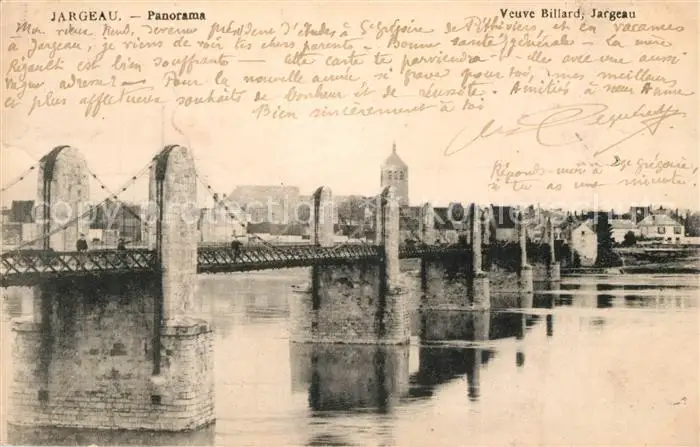 JARGEAU. - Panorama
Veuve Billard, Jargeau
Mon vieux René, devenu président d'études à St Grégoire de Pithiviers, et en vacances
à Jargeau, je viens de voir tes chers parents - Bonne santé générale - la mère
Rigault est bien souffrante - elle carte te parviendra-t-elle avec une aussi
vague adresse? - Pour la nouvelle année, si grave pour toi, mes meilleurs
et plus affectueux souhaits de bonheur et de réussite. Amitiés à sœur Anne
Bien sincèrement à toi
Réponds-moi à St Grégoire,
si tu as une minute